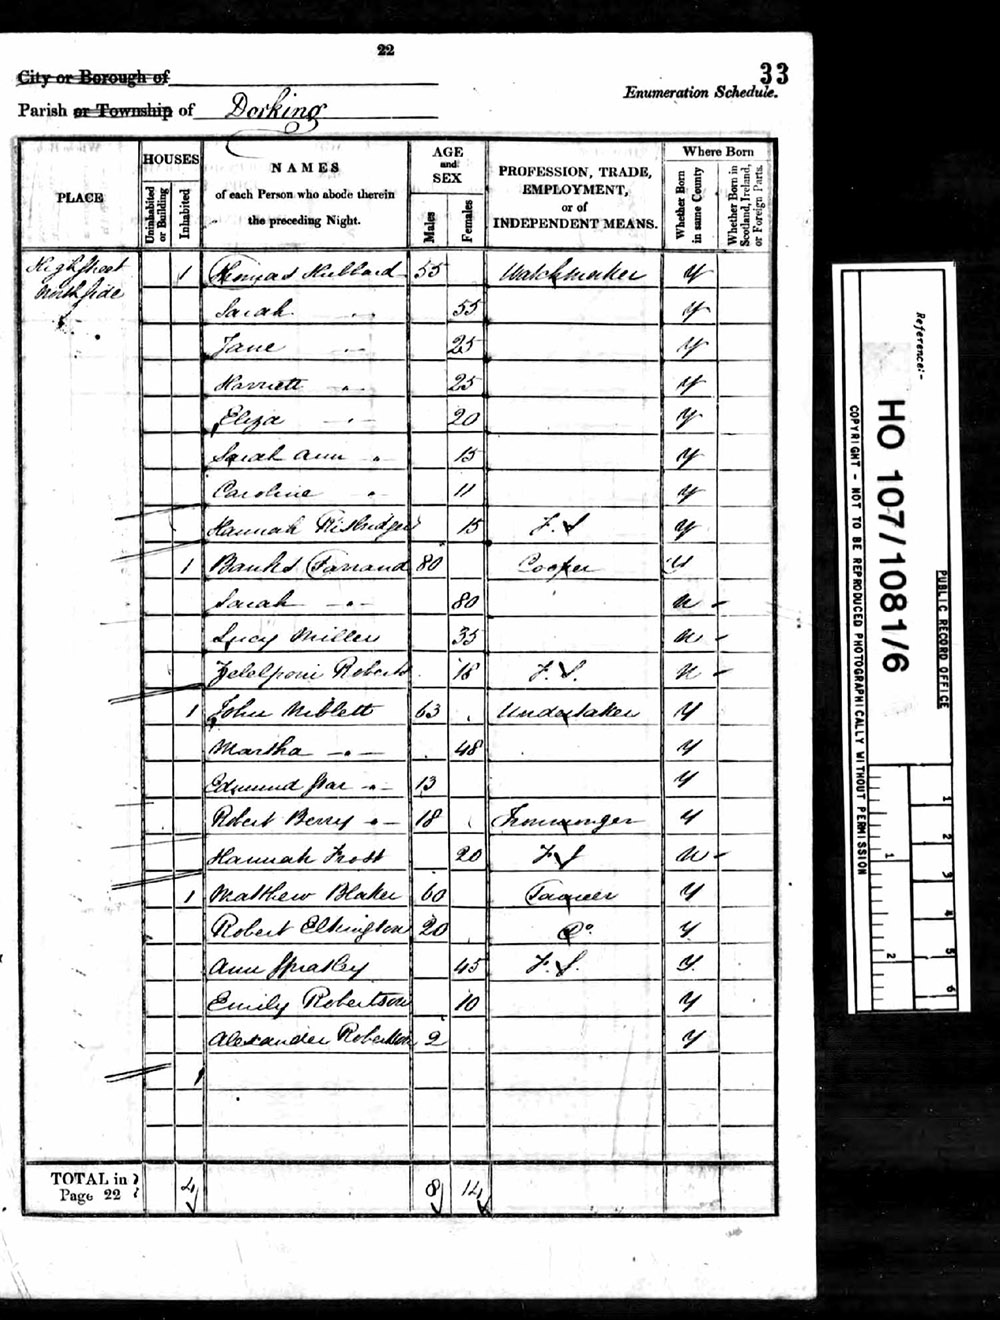 22
33
City or Borough of
Enumeration Schedule.
Parish or Township of Dorking
PLACE
HOUSES
Uninhabited or Building
Inhabited
NAMES
of each Person who abode therein
the preceding Night.
AGE
and
SEX
Males
Females
PROFESSION, TRADE,
EMPLOYMENT,
or of
INDEPENDENT MEANS.
Where Born
Whether Born in same County
Whether Born in Scotland, Ireland, or Foreign Parts.
High Street 1 Thomas Hubbard 55 Watchmaker Y
North side
Sarah 〃 55 Y
Jane 〃 25 Y
Harriett 〃 25 Y
Eliza 〃 20 Y
Sarah Ann 〃 15 Y
Caroline 〃 11 Y
Hannah Risbridger 15 F.S Y
1 Banks Farrand 80 Cooper Y
Sarah 〃 80 N
Lucy Miller 35 N
Roberts 18 F.S. N
1 John Niblett 63 Undertaker Y
Martha 〃 48 Y
Edmund 〃 13 Y
Robert Berry 〃 18 Ironmonger Y
Hannah Frost 20 F S N
1 Matthew Blaker 60 Y
Robert Elkington 20 Do. Y
Ann Spratley 45 F.S. Y.
Emily Robertson 10 Y
Alexander Robertson 2 Y
TOTAL in
Page 22 4 8 14
Reference:-
HO 107/1081/6
PUBLIC RECORD OFFICE
COPYRIGHT - NOT TO BE REPRODUCED PHOTOGRAPHICALLY WITHOUT PERMISSION
1
2
1
2
3
4
5
6